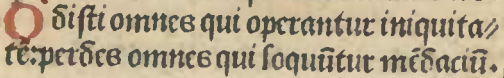 Odisti omnes qui operantur iniquita⸗
tē: perdes omnes qui loquūtur mēdaciū.